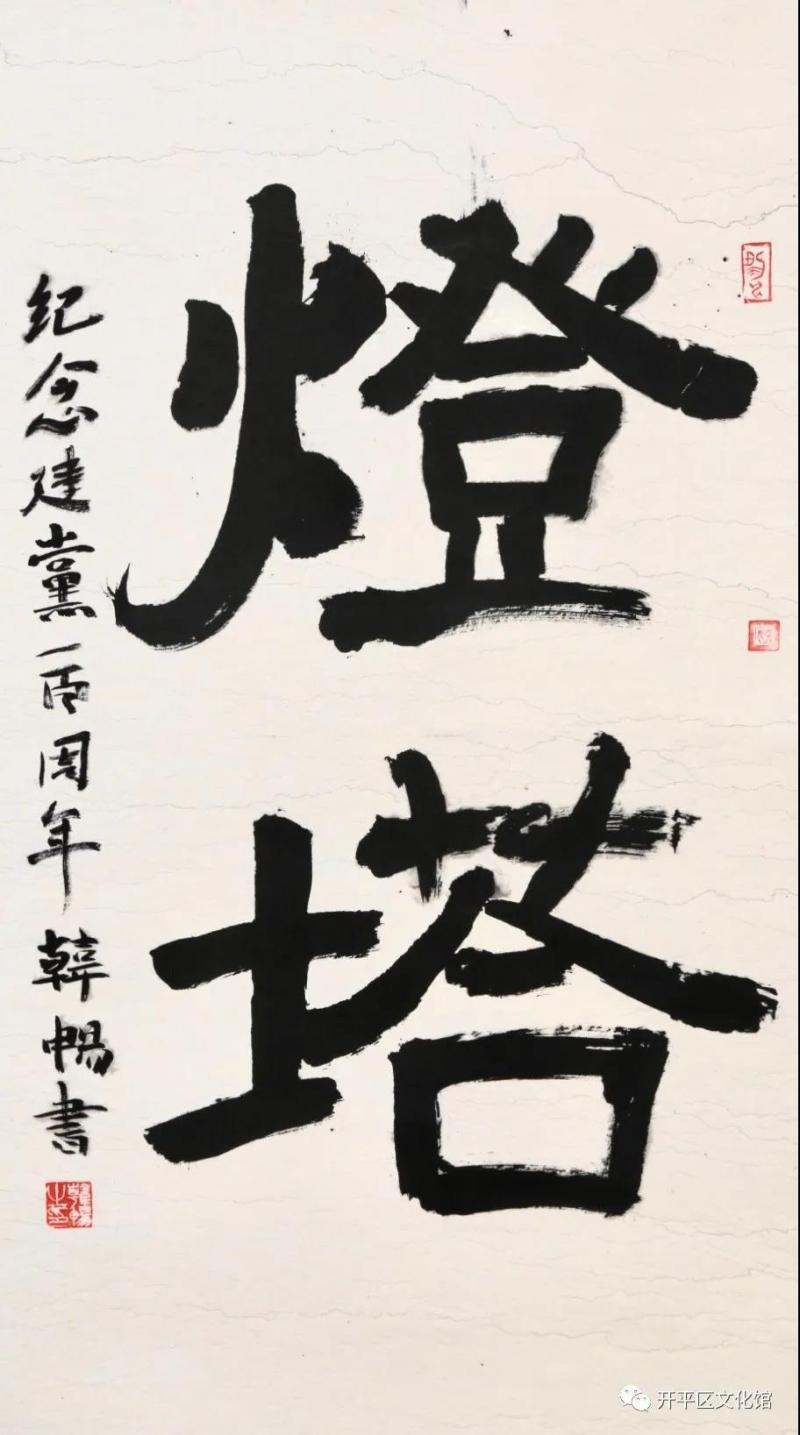 燈
塔
紀念建黨一百周年 韓暢書
开平区文化馆